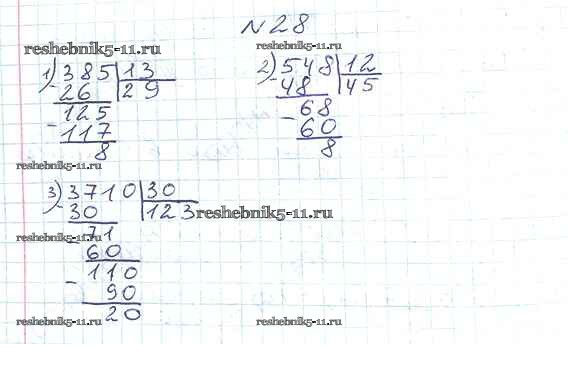 №28
reshebnik5-11.ru
reshebnik5-11.ru
1) 385 | 13
- 26 | 29
125
- 117
8
reshebnik5-11.ru
2) 548 | 12
- 48 | 45
68
- 60
8
3) 3710 | 30
- 30 | 123
reshebnik5-11.ru
71
reshebnik5-11.ru
60
110
- 90
20
reshebnik5-11.ru
reshebnik5-11.ru